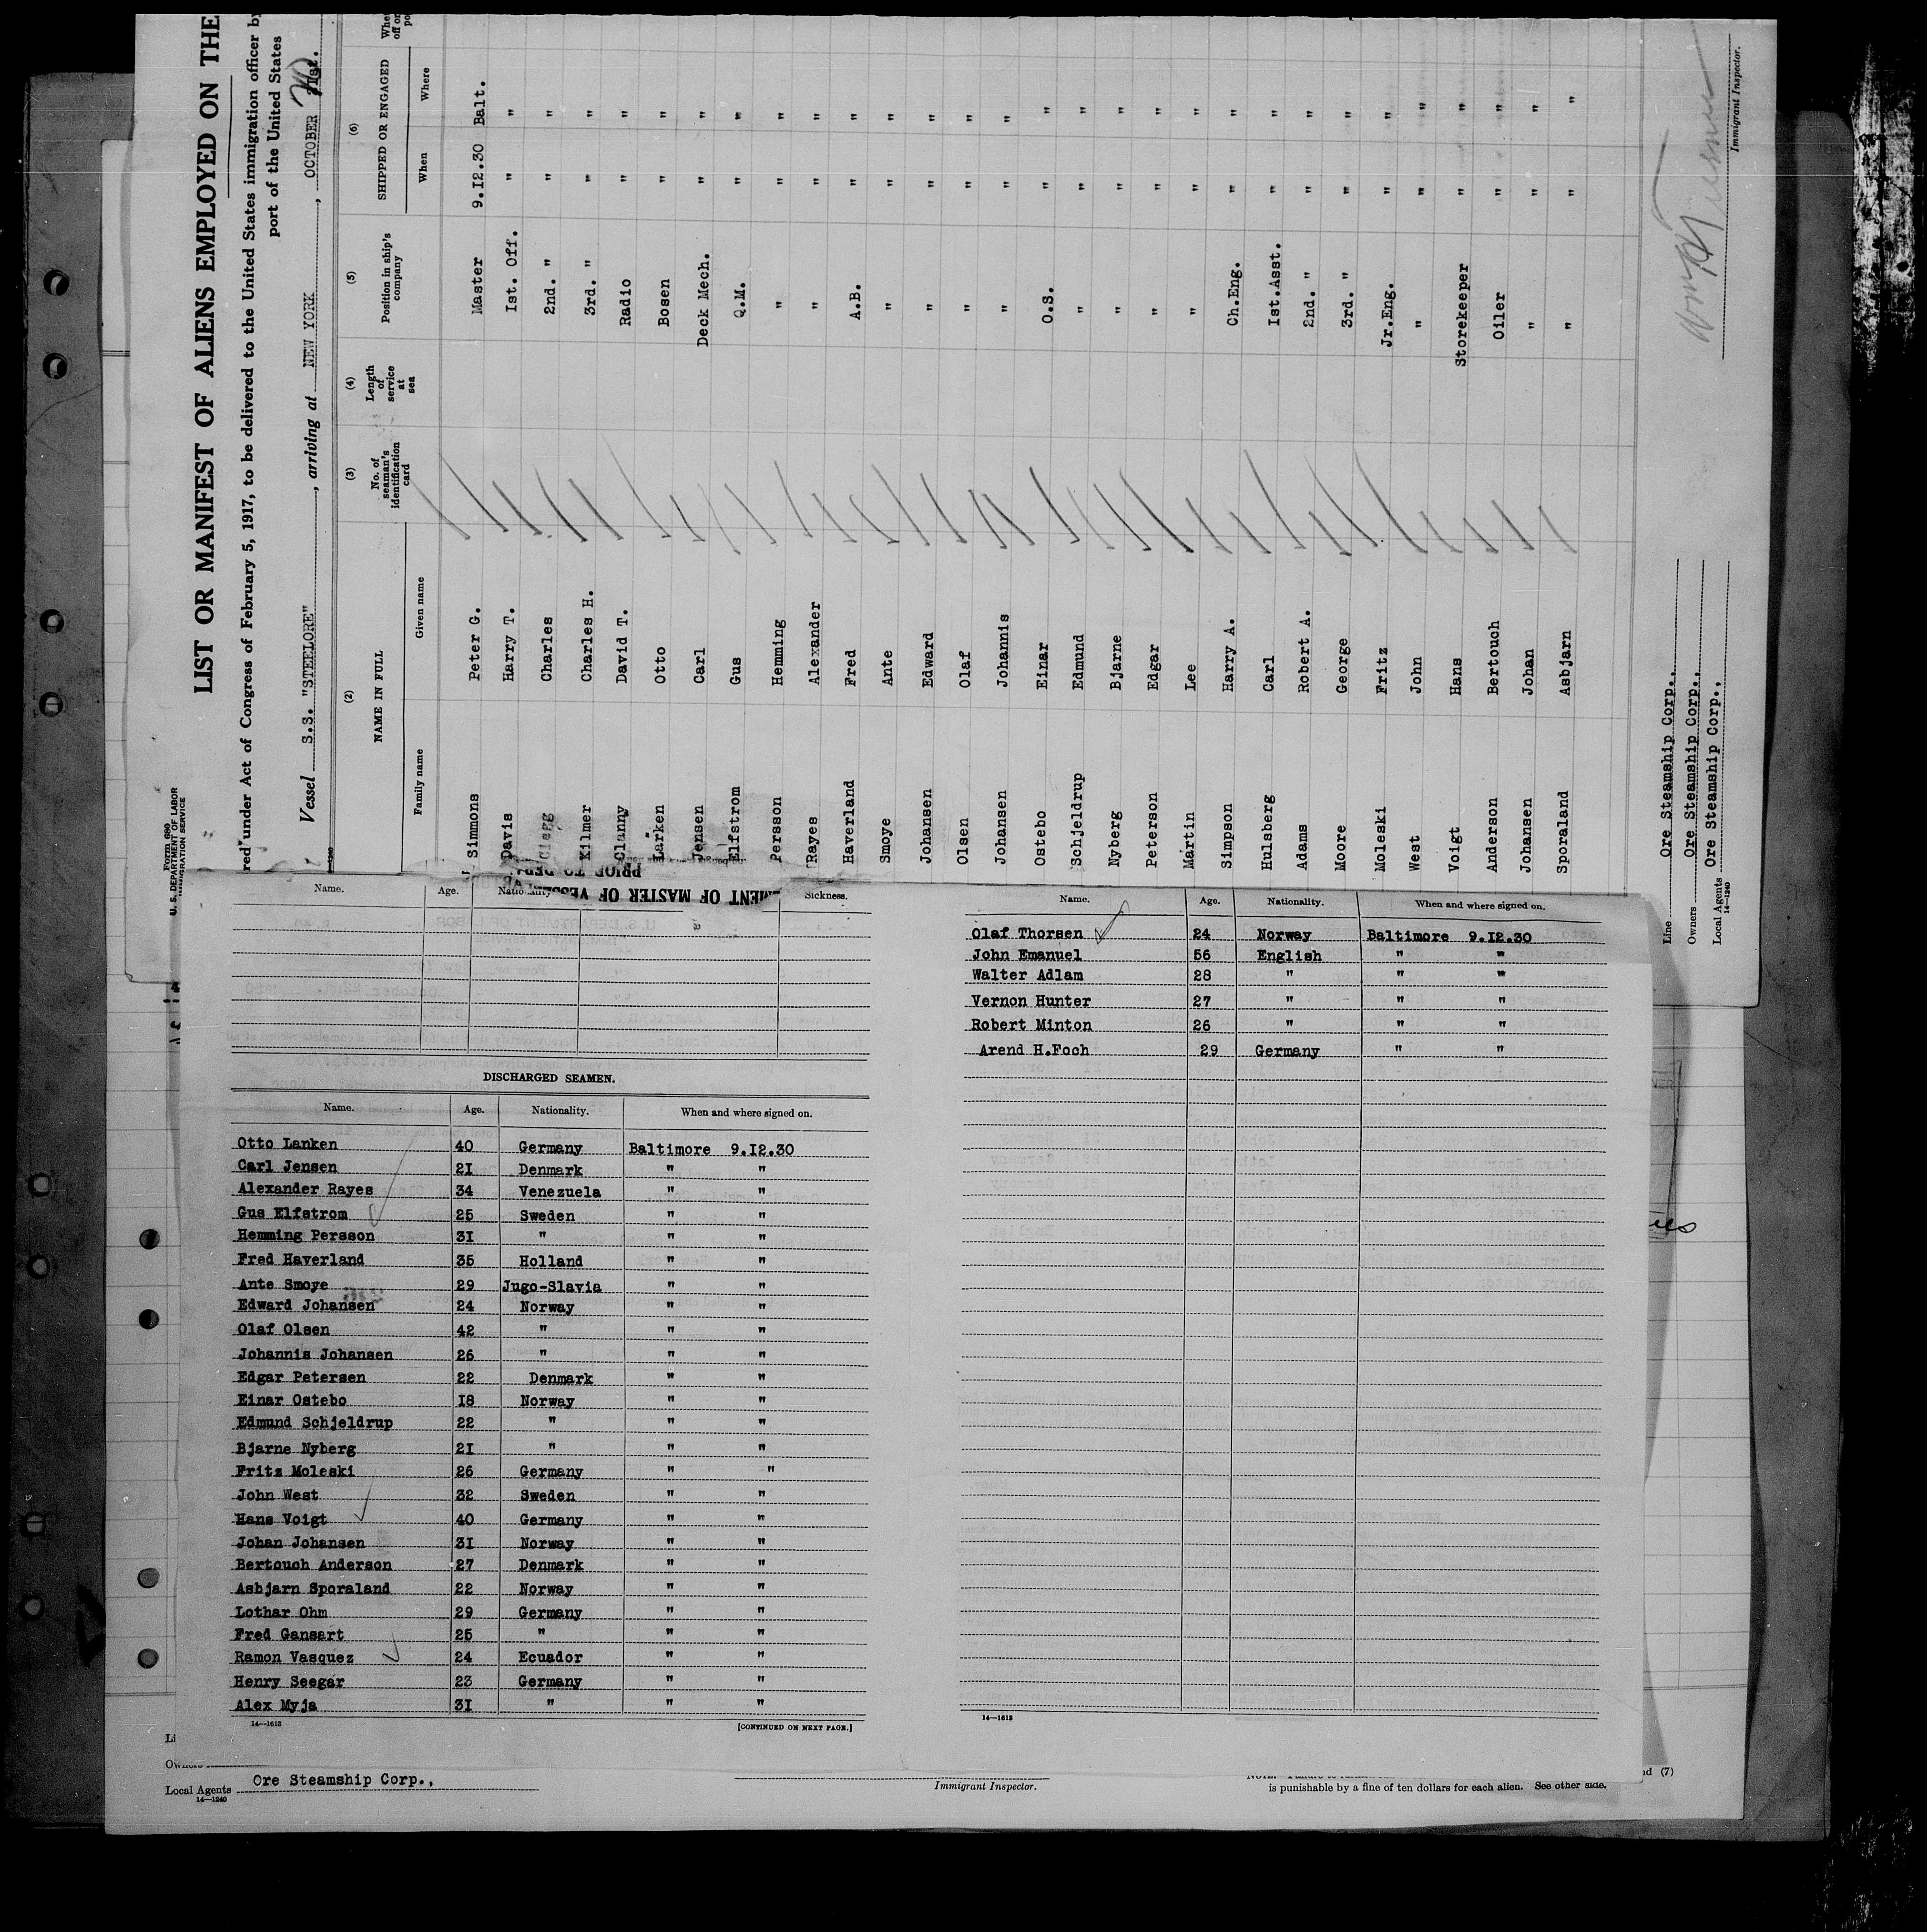 LIST OR MANIFEST OF ALIENS EMPLOYED ON THE
red under Act of Congress of February 5, 1917, to be delivered to the United States immigration officer by
port of the United States
Vessel S.S. "STEELORE", arriving at NEW YORK, OCTOBER
Form 680
U. S. DEPARTMENT OF LABOR
IMMIGRATION SERVICE
14—1240
(2) (3) (4) (5) (6)
NAME IN FULL No. of seaman's identification card Length of service at sea Position in ship's company SHIPPED OR ENGAGED
Family name Given name When Where
Simmons Peter G. Master 9.I2.30 Balt.
Davis Harry T. Ist. Off. " "
Clegg Charles 2nd. " " "
Kilmer Charles H. 3rd. " " "
Clanny David T. Radio " "
Larken Otto Bosen " "
Jensen Carl Deck Mech. " "
Elfstrom Gus Q.M. " "
Persson Hemming " " "
Rayes Alexander " " "
Haverland Fred A.B. " "
Smoye Ante " " "
Johansen Edward " " "
Olsen Olaf " " "
Johansen Johannis " " "
Ostebo Einar O.S. " "
Schjeldrup Edmund " " "
Nyberg Bjarne " " "
Peterson Edgar " " "
Martin Lee " " "
Simpson Harry A. Ch.Eng. " "
Hulsberg Carl Ist.Asst. " "
Adams Robert A. 2nd. " " "
Moore George 3rd. " " "
Moleski Fritz Jr.Eng. " "
West John " " "
Voigt Hans Storekeeper " "
Anderson Bertouch Oiler " "
Johansen Johan " " "
Sporaland Asbjarn " " "
Line Ore Steamship Corp.,
Owners Ore Steamship Corp.,
Local Agents Ore Steamship Corp.,
14—1240
Immigrant Inspector.
MENT OF MASTER OF VESSEL
PRIOR TO DEPA
Name. Age. Nationality. Sickness.
DISCHARGED SEAMEN.
Name. Age. Nationality. When and where signed on.
Otto Lanken 40 Germany Baltimore 9.I2.30
Carl Jensen 2I Denmark " "
Alexander Rayes 34 Venezuela " "
Gus Elfstrom 25 Sweden " "
Hemming Persson 3I " " "
Fred Haverland 35 Holland " "
Ante Smoye 29 Jugo-Slavia " "
Edward Johansen 24 Norway " "
Olaf Olsen 42 " " "
Johannis Johansen 26 " " "
Edgar Petersen 22 Denmark " "
Einar Ostebo I8 Norway " "
Edmund Schjeldrup 22 " " "
Bjarne Nyberg 2I " " "
Fritz Moleski 26 Germany " "
John West 32 Sweden " "
Hans Voigt 40 Germany " "
Johan Johansen 3I Norway " "
Bertouch Anderson 27 Denmark " "
Asbjarn Sporaland 22 Norway " "
Lothar Ohm 29 Germany " "
Fred Gansart 25 " " "
Ramon Vasquez 24 Ecuador " "
Henry Seegar 23 Germany " "
Alex Myja 3I " " "
14—1613 [CONTINUED ON NEXT PAGE.]
Name. Age. Nationality. When and where signed on.
Olaf Thorsen 24 Norway Baltimore 9.I2.30
John Emanuel 56 English " "
Walter Adlam 28 " " "
Vernon Hunter 27 " " "
Robert Minton 26 " " "
Arend H.Foch 29 Germany " "
14—1613
Li
Owners
Local Agents Ore Steamship Corp.,
14—1240
Immigrant Inspector.
nd (7)
is punishable by a fine of ten dollars for each alien. See other side.